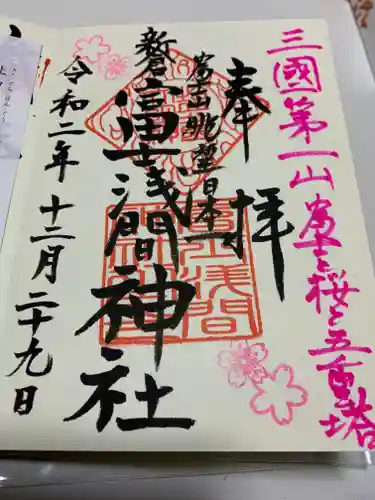 三國第一山 富士と桜と五重塔
奉拝
富士山眺望日本一
新倉
富士浅間神社
令和二年十二月二十九日